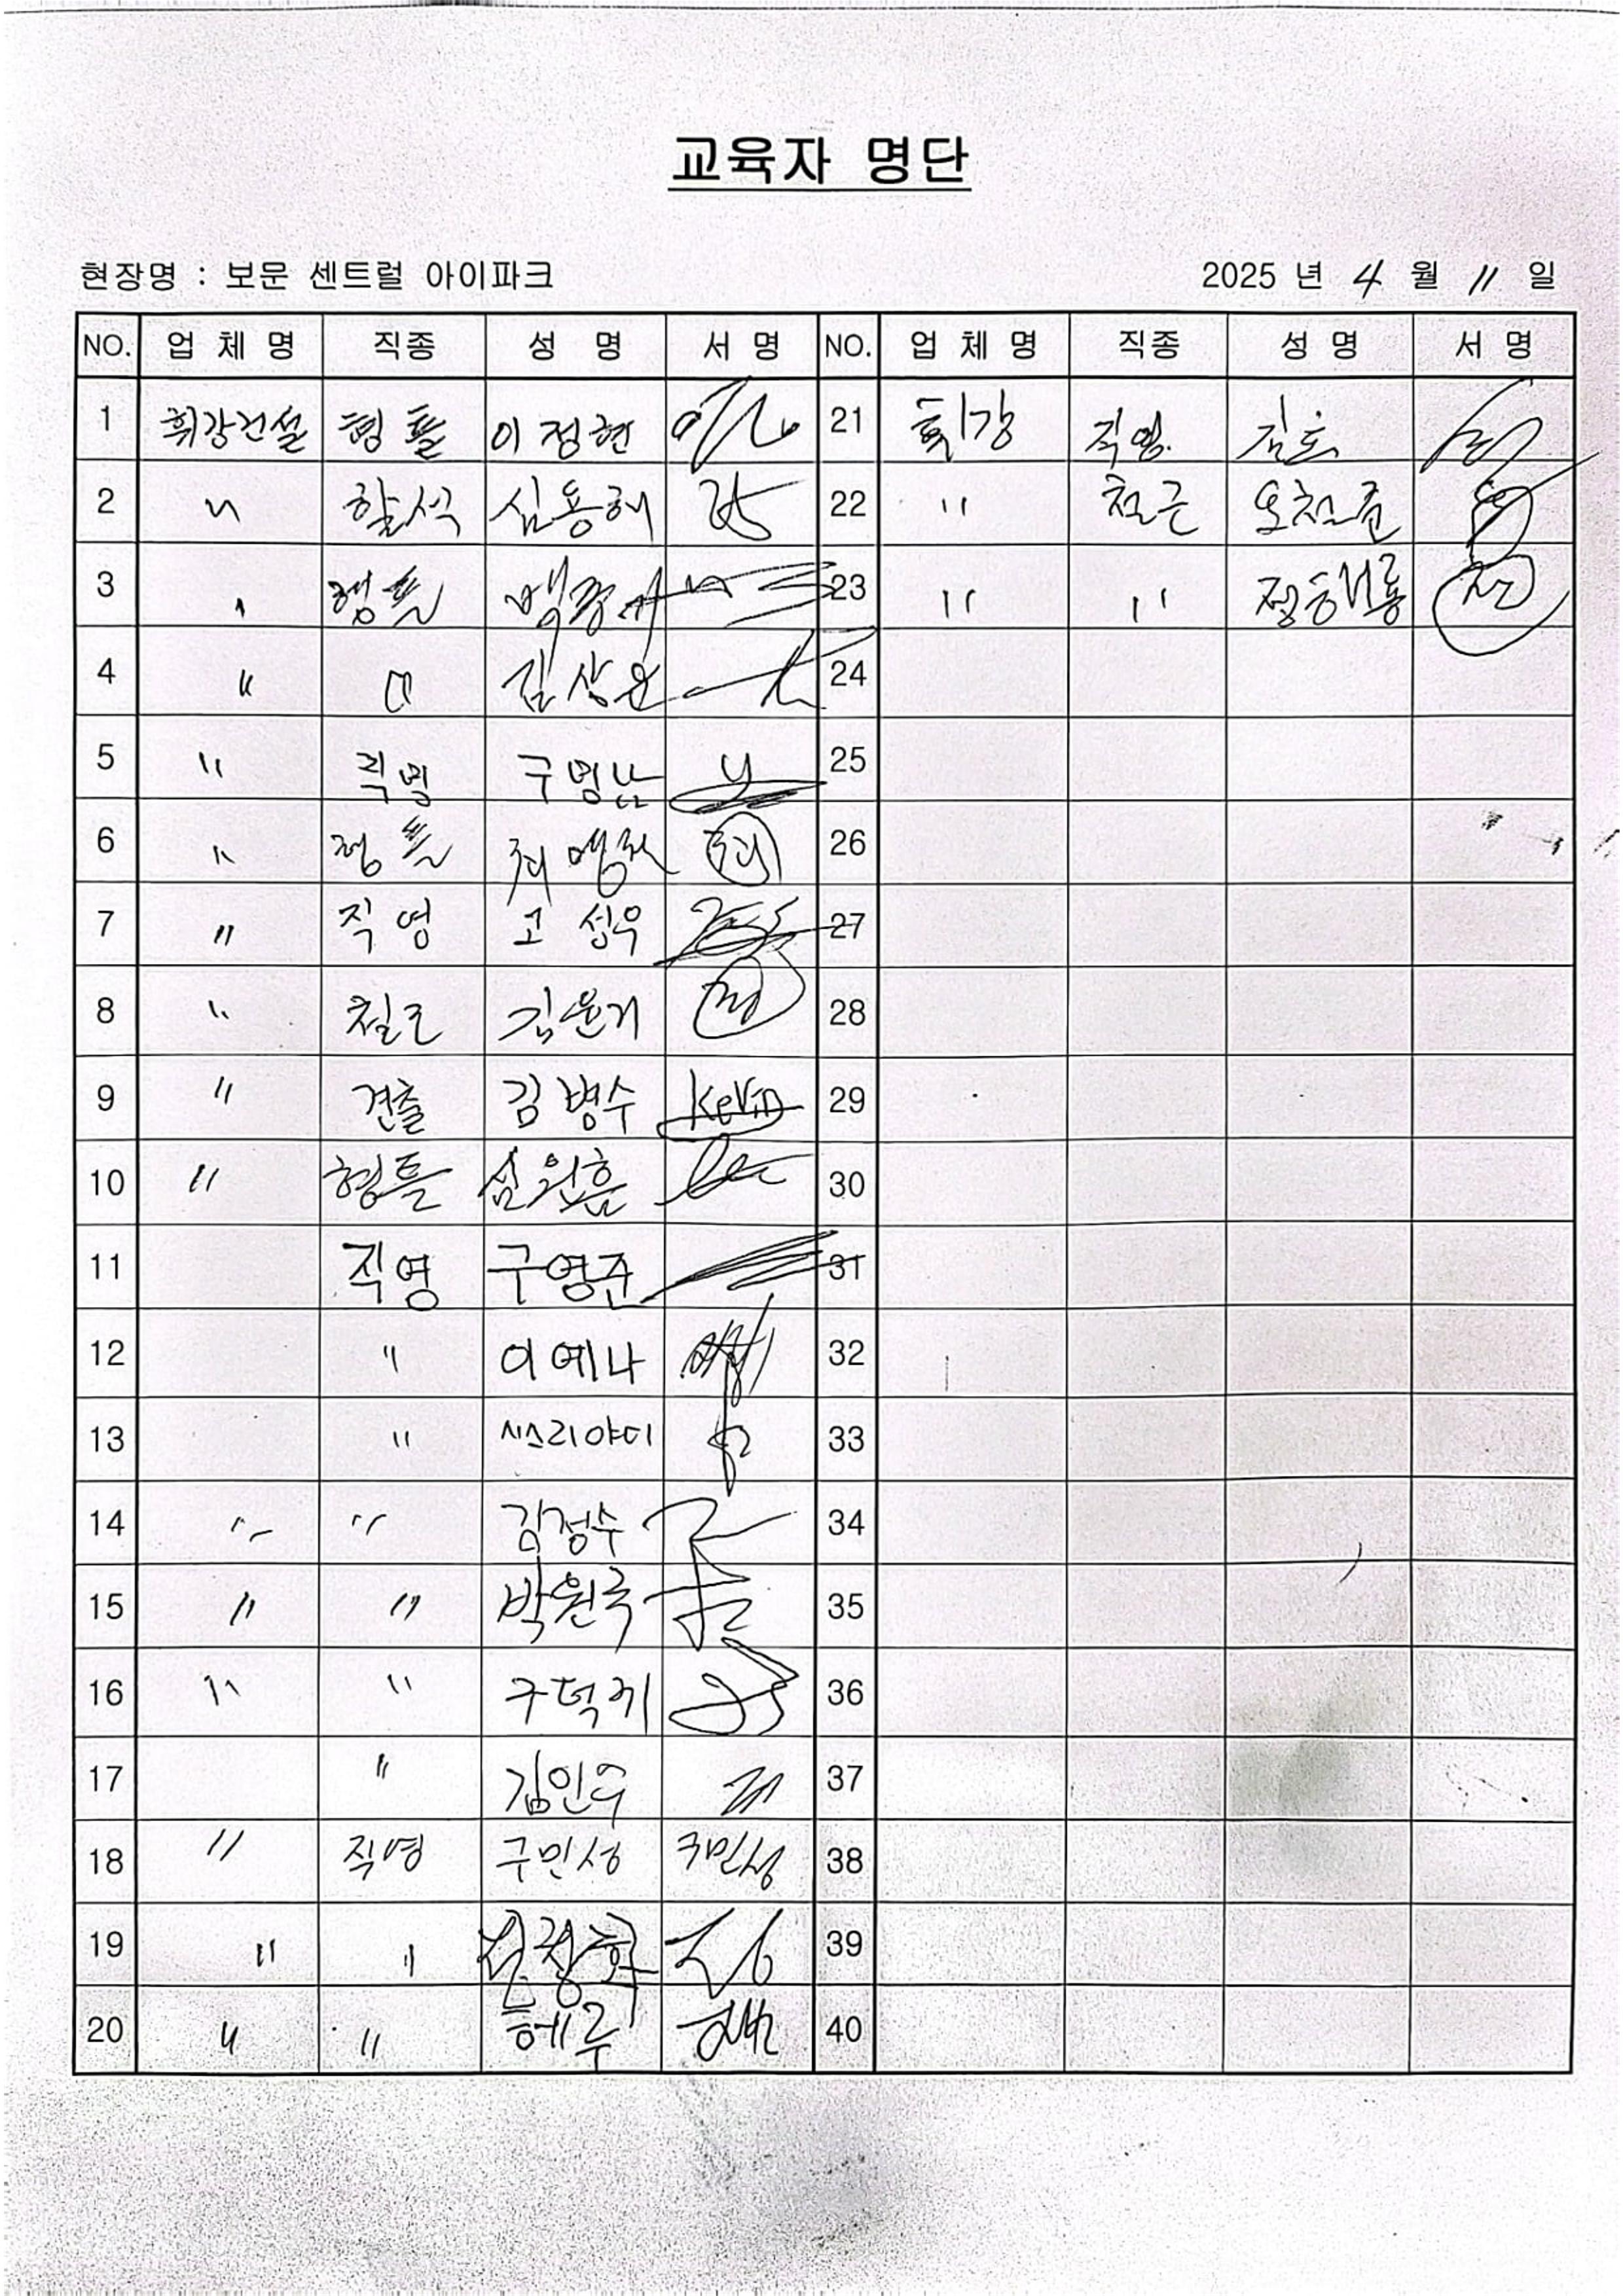 교육자 명단
현장명 : 보문 센트럴 아이파크 2025 년 4 월 11 일
NO. 업 체 명 직종 성 명 서 명 NO. 업 체 명 직종 성 명 서 명
1 휘강건설 형틀 이정현 21 휘강 직영
2 〃 할석 심용해 22 〃 철근 오천준
3 〃 형틀 23 〃 〃
4 〃 〃 김상운 24
5 〃 직영 구명남 25
6 〃 형틀 26
7 〃 직영 고섭우 27
8 〃 철근 김윤기 28
9 〃 견출 김병수 Kevin 29
10 〃 형틀 심원흠 30
11 직영 구영준 31
12 〃 이예나 32
13 〃 시스리야디 33
14 〃 〃 김정수 34
15 〃 〃 박원국 35
16 〃 〃 구덕기 36
17 〃 김인수 37
18 〃 직영 구민성 구민성 38
19 〃 〃 39
20 〃 〃 헤루 40